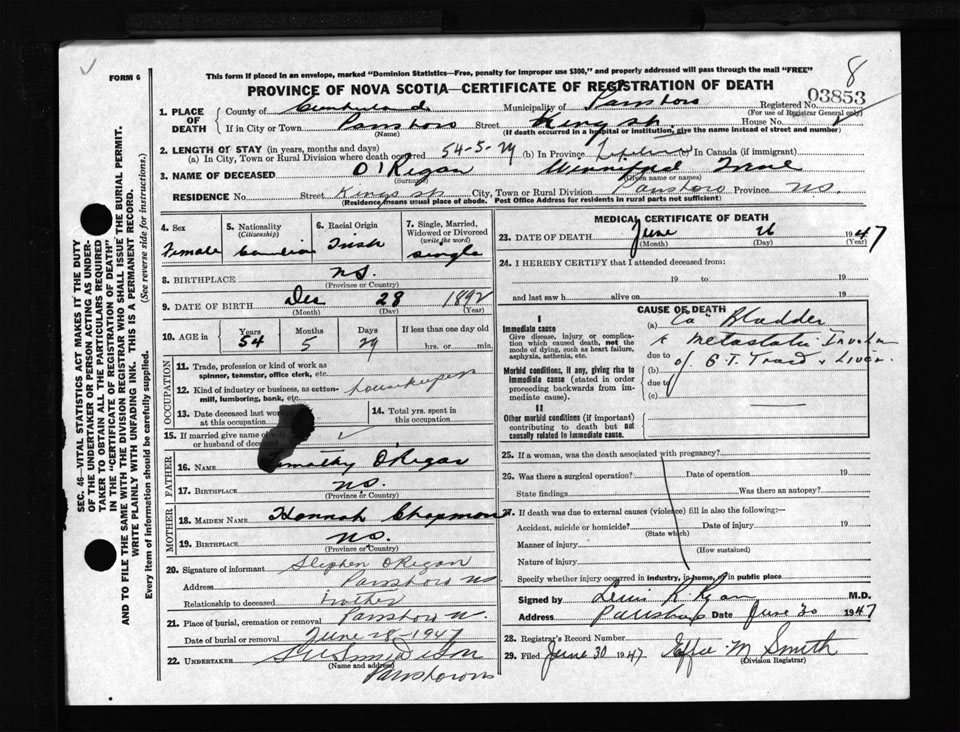 FORM 6
This form if placed in an envelope, marked "Dominion Statistics—Free, penalty for improper use $300," and properly addressed will pass through the mail "FREE"
8
PROVINCE OF NOVA SCOTIA—CERTIFICATE OF REGISTRATION OF DEATH
03853
1. PLACE OF DEATH
County of Cumberland Municipality of Parrsboro Registered No.
(For use of Registrar General only)
If in City or Town Parrsboro Street King St. House No.
(Name) (If death occurred in a hospital or institution, give the name instead of street and number)
2. LENGTH OF STAY (in years, months and days)
(a) In City, Town or Rural Division where death occurred 54-5-29 (b) In Province Lifetime (c) In Canada (if immigrant)
3. NAME OF DECEASED O'Regan Winnifred
(Surname) (Given name or names)
RESIDENCE No. Street King St City, Town or Rural Division Parrsboro Province NS
(Residence means usual place of abode. Post Office Address for residents in rural parts not sufficient)
4. Sex
Female
5. Nationality
(Citizenship)
Canadian
6. Racial Origin
Irish
7. Single, Married, Widowed or Divorced
(write the word)
single
8. BIRTHPLACE N.S.
(Province or Country)
9. DATE OF BIRTH Dec 28 1892
(Month) (Day) (Year)
10. AGE IN Years Months Days If less than one day old
54 5 29 hrs. or min.
OCCUPATION
11. Trade, profession or kind of work as spinner, teamster, office clerk, etc.
12. Kind of industry or business, as cotton-mill, lumboring, bank, etc. housekeeper
13. Date deceased last at this occupation
14. Total yrs. spent in this occupation
15. If married give name of
or husband of deceased
FATHER
16. NAME Timothy O'Regan
17. BIRTHPLACE N.S.
(Province or Country)
MOTHER
18. MAIDEN NAME Hannah Chapman
19. BIRTHPLACE N.S.
(Province or Country)
20. Signature of informant Stephen O'Regan
Address Parrsboro NS
Relationship to deceased brother
21. Place of burial, cremation or removal Parrsboro N.
Date of burial or removal June 28-1947
22. UNDERTAKER
(Name and address)
Parrsboro NS
MEDICAL CERTIFICATE OF DEATH
23. DATE OF DEATH June 26 1947
(Month) (Day) (Year)
24. I HEREBY CERTIFY that I attended deceased from:
19 to 19
and last saw h alive on 19
CAUSE OF DEATH
I
Immediate cause
Give disease, injury or complication which caused death, not the mode of dying, such as heart failure, asphyxia, asthenia, etc.
Morbid conditions, if any, giving rise to immediate cause (stated in order proceeding backwards from immediate cause).
II
Other morbid conditions (if important) contributing to death but not causally related to immediate cause.
(a) "Ca" Bladder
metastatic
due to of G.I. Tract & Liver
(b)
due to
(c)
25. If a woman, was the death associated with pregnancy?
26. Was there a surgical operation? Date of operation 19
State findings Was there an autopsy?
If death was due to external causes (violence) fill in also the following:—
Accident, suicide or homicide? Date of injury 19
(State which)
Manner of injury
(How sustained)
Nature of injury
Specify whether injury occurred in industry, in home, or in public place
Signed by Lewis R Ryan M.D.
Address Parrsboro Date June 30 1947
28. Registrar's Record Number
29. Filed June 30 1947 Effie M Smith
(Division Registrar)
SEC. 46—VITAL STATISTICS ACT MAKES IT THE DUTY
OF THE UNDERTAKER OR PERSON ACTING AS UNDER-
TAKER TO OBTAIN ALL THE PARTICULARS REQUIRED
IN THE "CERTIFICATE OF REGISTRATION OF DEATH"
AND TO FILE THE SAME WITH THE DIVISION REGISTRAR WHO SHALL ISSUE THE BURIAL PERMIT.
WRITE PLAINLY WITH UNFADING INK. THIS IS A PERMANENT RECORD.
Every item of information should be carefully supplied. (See reverse side for instructions.)